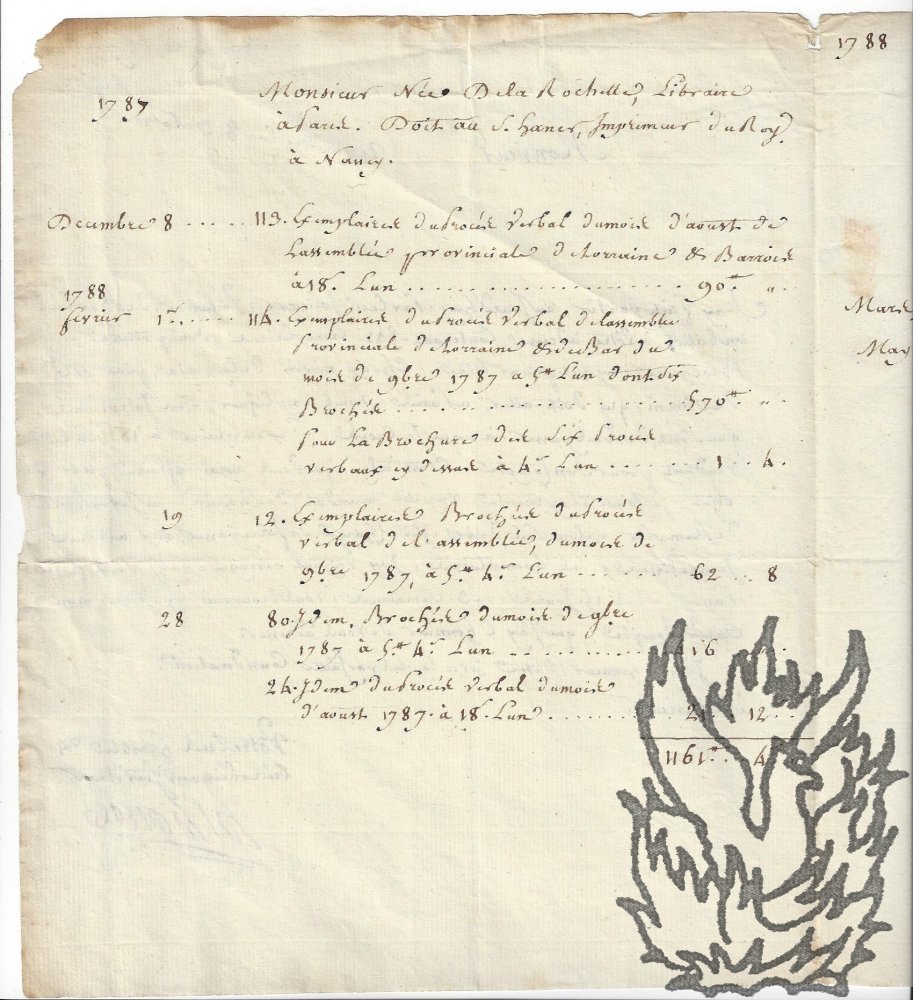 1788
1787
Monsieur Née Dela Rochelle, Libraire
à Paris. Doit au S. haner, Imprimeur du Roy
à Nancy.
Decembre 8 .... 113. Exemplaires du Procès Verbal du mois d'aoust de
Lassemblée provinciale de Lorraine & Barrois
à 18ˢ. Lun .................... 90ᵗᵗ. "..
1788
fevrier 1ᵉʳ..... 114. Exemplaires du Procès Verbal de lassemblée
Provinciale de Lorraine & de Bar du
mois de 9bre 1787 à 5ᵗᵗ Lun dont six
Brochés .................... 570ᵗᵗ. "..
pour La Brochure des Six Procès
verbaux cy dessus à 4ˢ Lun ...... 1 .. 4.
19 12. Exemplaires Brochés du Procès
verbal de l'assemblée, du mois de
9bre 1787, à 5ᵗᵗ 4ˢ Lun ...... 62 .. 8
28 80. Idem. Brochés du mois de 9bre
1787 à 5ᵗᵗ 4ˢ Lun .......... 416
24. Idem du Procès verbal du mois
d'aoust 1787. à 18ˢ. Lun ........ 21 . 12 ..
1161ᵗᵗ.. 4ˢ
Mars
May